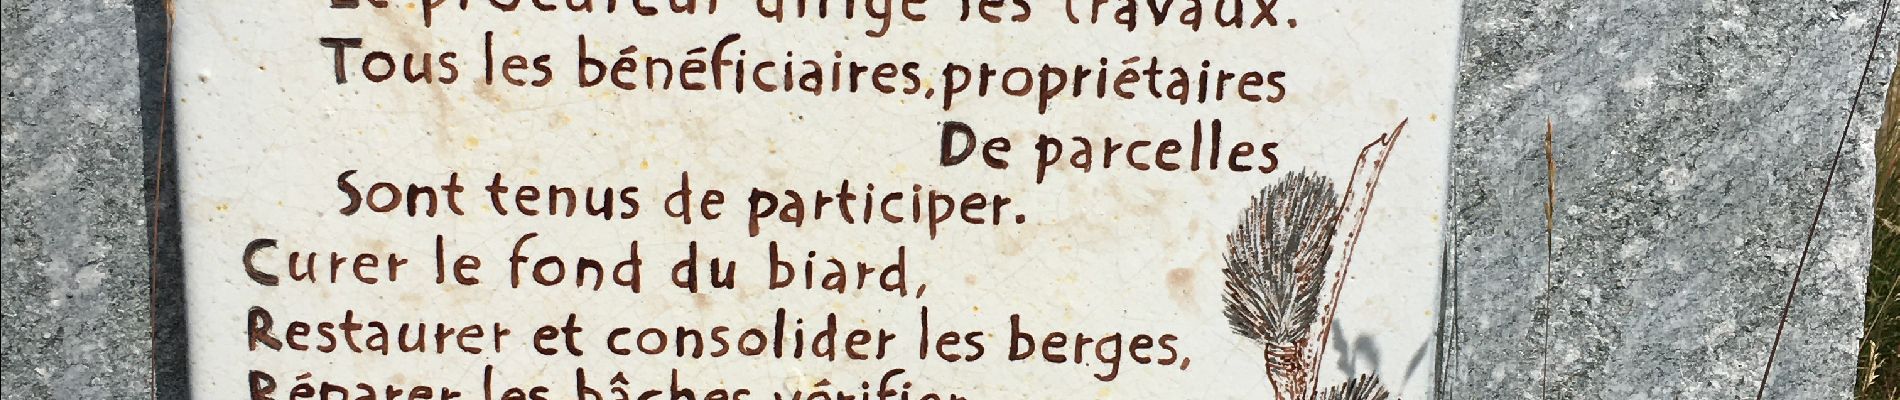 Le procureur dirige les travaux.
Tous les bénéficiaires, propriétaires
De parcelles
Sont tenus de participer.
Curer le fond du biard,
Restaurer et consolider les berges,
Réparer les bâches vérifier